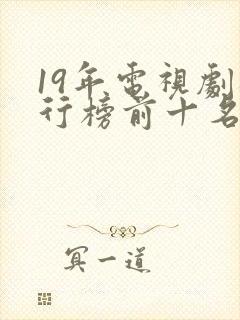 19年電視劇
行榜前十名
冥一道